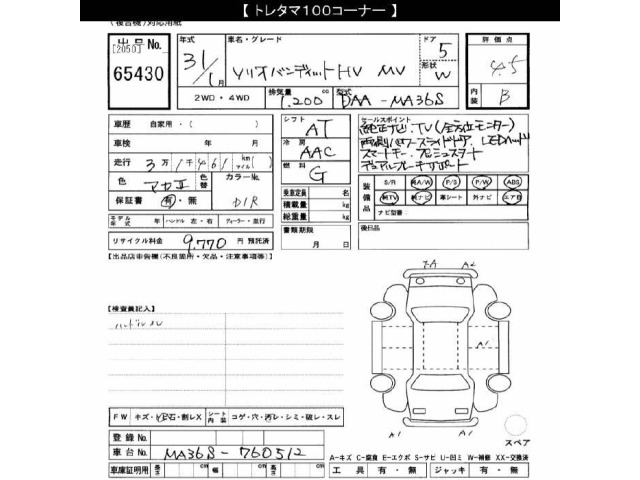 【 トレタマ100コーナー 】
(複合機)対応用紙
出品 No.
[2050]
65430
年式
31/1月
車名・グレード
ソリオバンディットHV MV
ドア
5
形状
W
評価点
4.5
内装
B
2WD・4WD
排気量
1,200 cc
型式
DAA-MA36S
車歴 自家用・( )
車検 年 月
走行 3万1千461 km(マイル)
色
色替
カラーNo.
D1R
保証書 有・無
モデル年式 年 ハンドル 左・右 ディーラー・並行
リサイクル料金 9,770 円 預託済
シフト
AT
冷房
AAC
燃料
G
乗車定員 名
積載量 kg
総重量 kg
書類期限
月 日
セールスポイント
純正ナビ・TV(全方位モニター)
両側パワースライドドア、LEDヘッド
スマートキー、プッシュスタート
デュアルカメラブレーキサポート
装備品
S/R 純A/W P/S P/W ABS
純TV 純ナビ 革シート 外ナビ エアB
ナビ型番
後日品
【出品店申告欄(不良箇所・欠品・注意事項等)】
【検査員記入】
ハンドルスレ
FW キズ・飛石・割レX シート内装 コゲ・穴・汚レ・シミ・破レ・スレ
登録 No.
車台 No. MA36S-760512
車庫証明用 長さ cm 幅 cm 高さ cm
A2
A1
A1
A1
スペア
A-キズ C-腐食 E-エクボ S-サビ U-凹ミ W-補修 XX-交換済
工具 有・無 ジャッキ 有・無